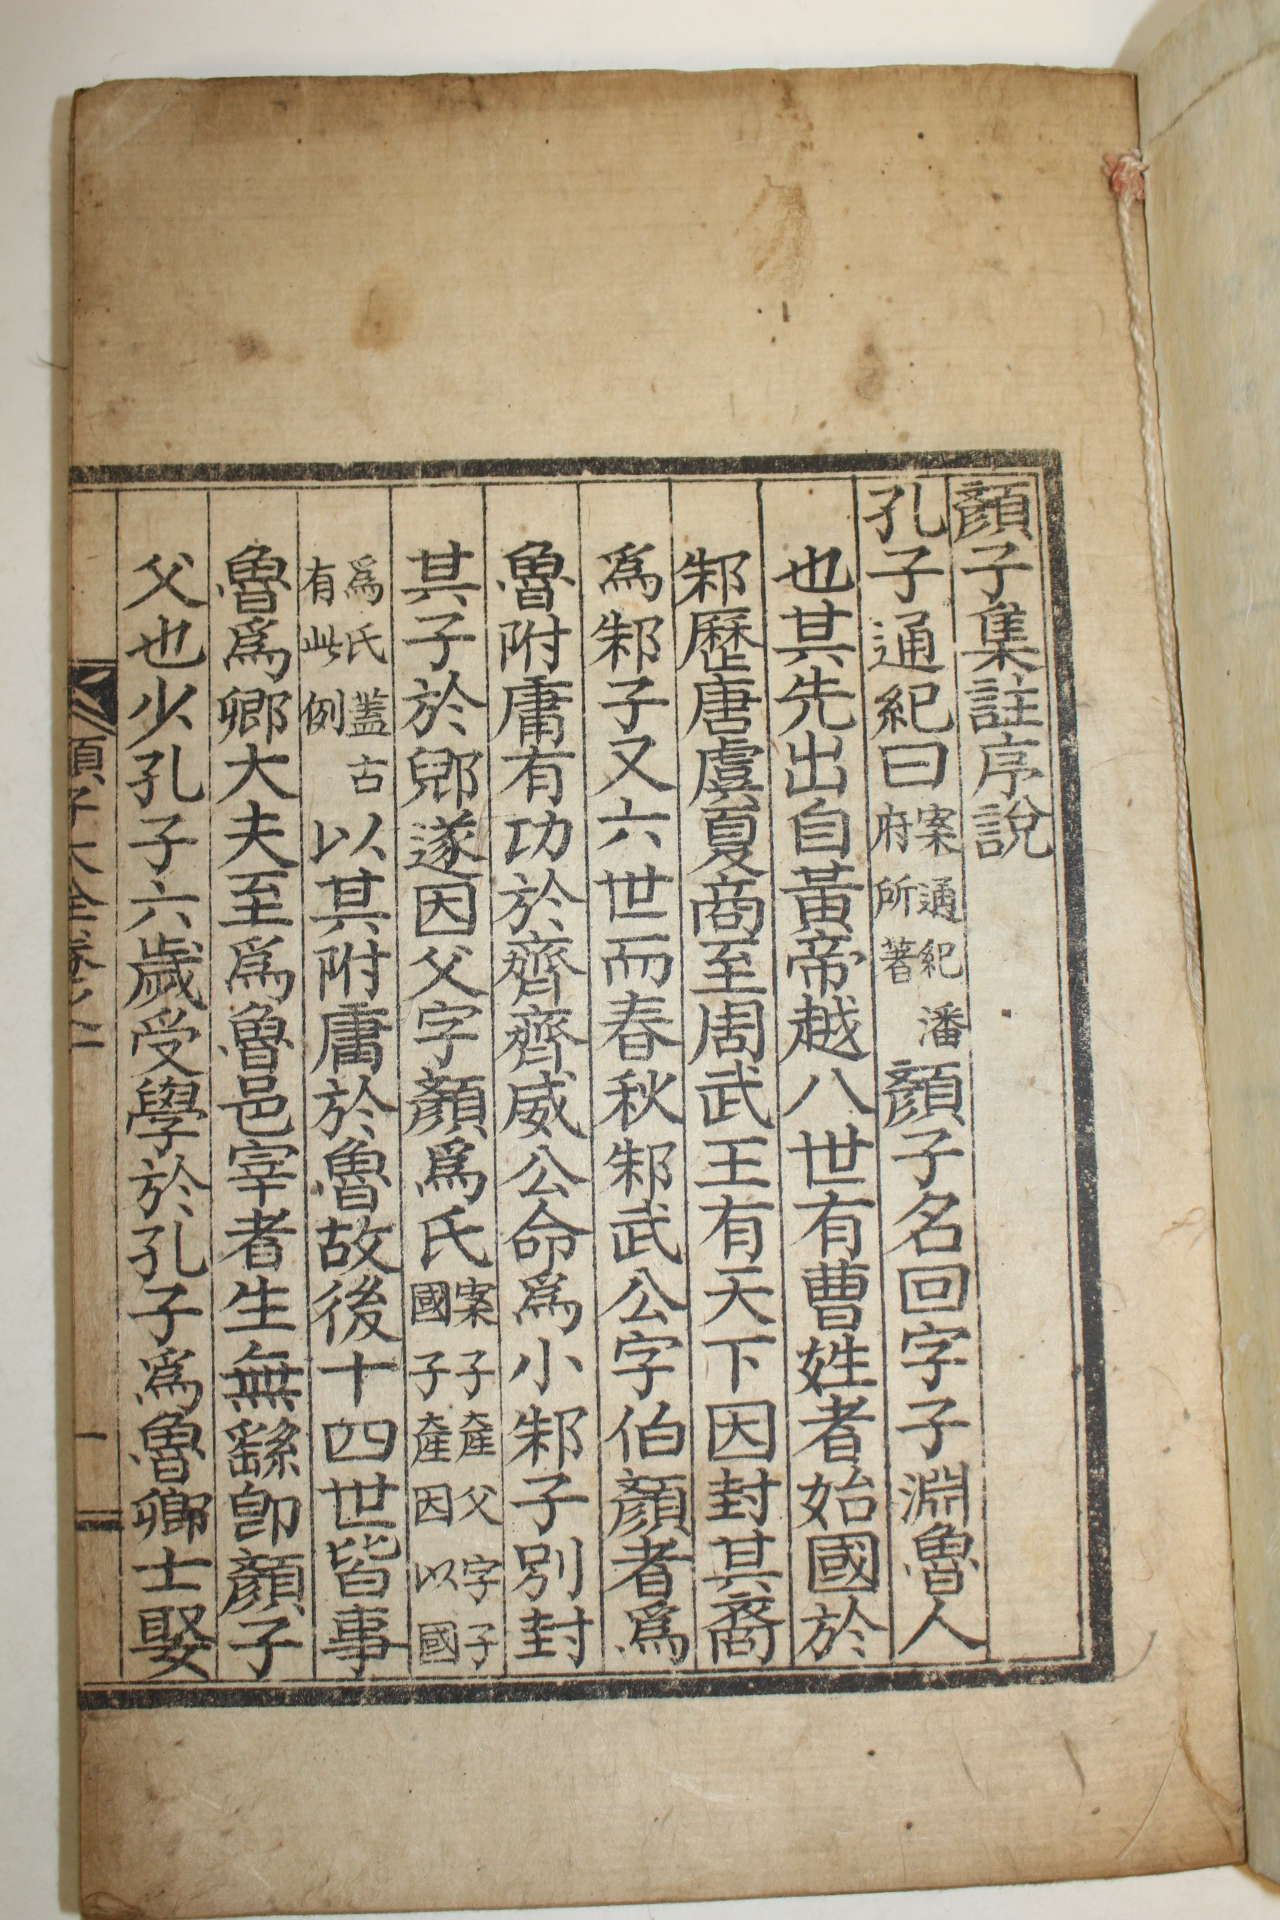 顏子集註序說
孔子通紀曰案通紀潘府所著顏子名回字子淵魯人
也其先出自黃帝越八世有曹姓者始國於
邾歷唐虞夏商至周武王有天下因封其裔
爲邾子又六世而春秋邾武公字伯顏者爲
魯附庸有功於齊齊威公命爲小邾子別封
其子於郳遂因父字顏爲氏案子產父字子國子產因以國
爲氏蓋古有此例以其附庸於魯故後十四世皆事
魯爲卿大夫至爲魯邑宰者生無繇卽顏子
父也少孔子六歲受學於孔子爲魯卿士娶
顏子大全卷之一 一